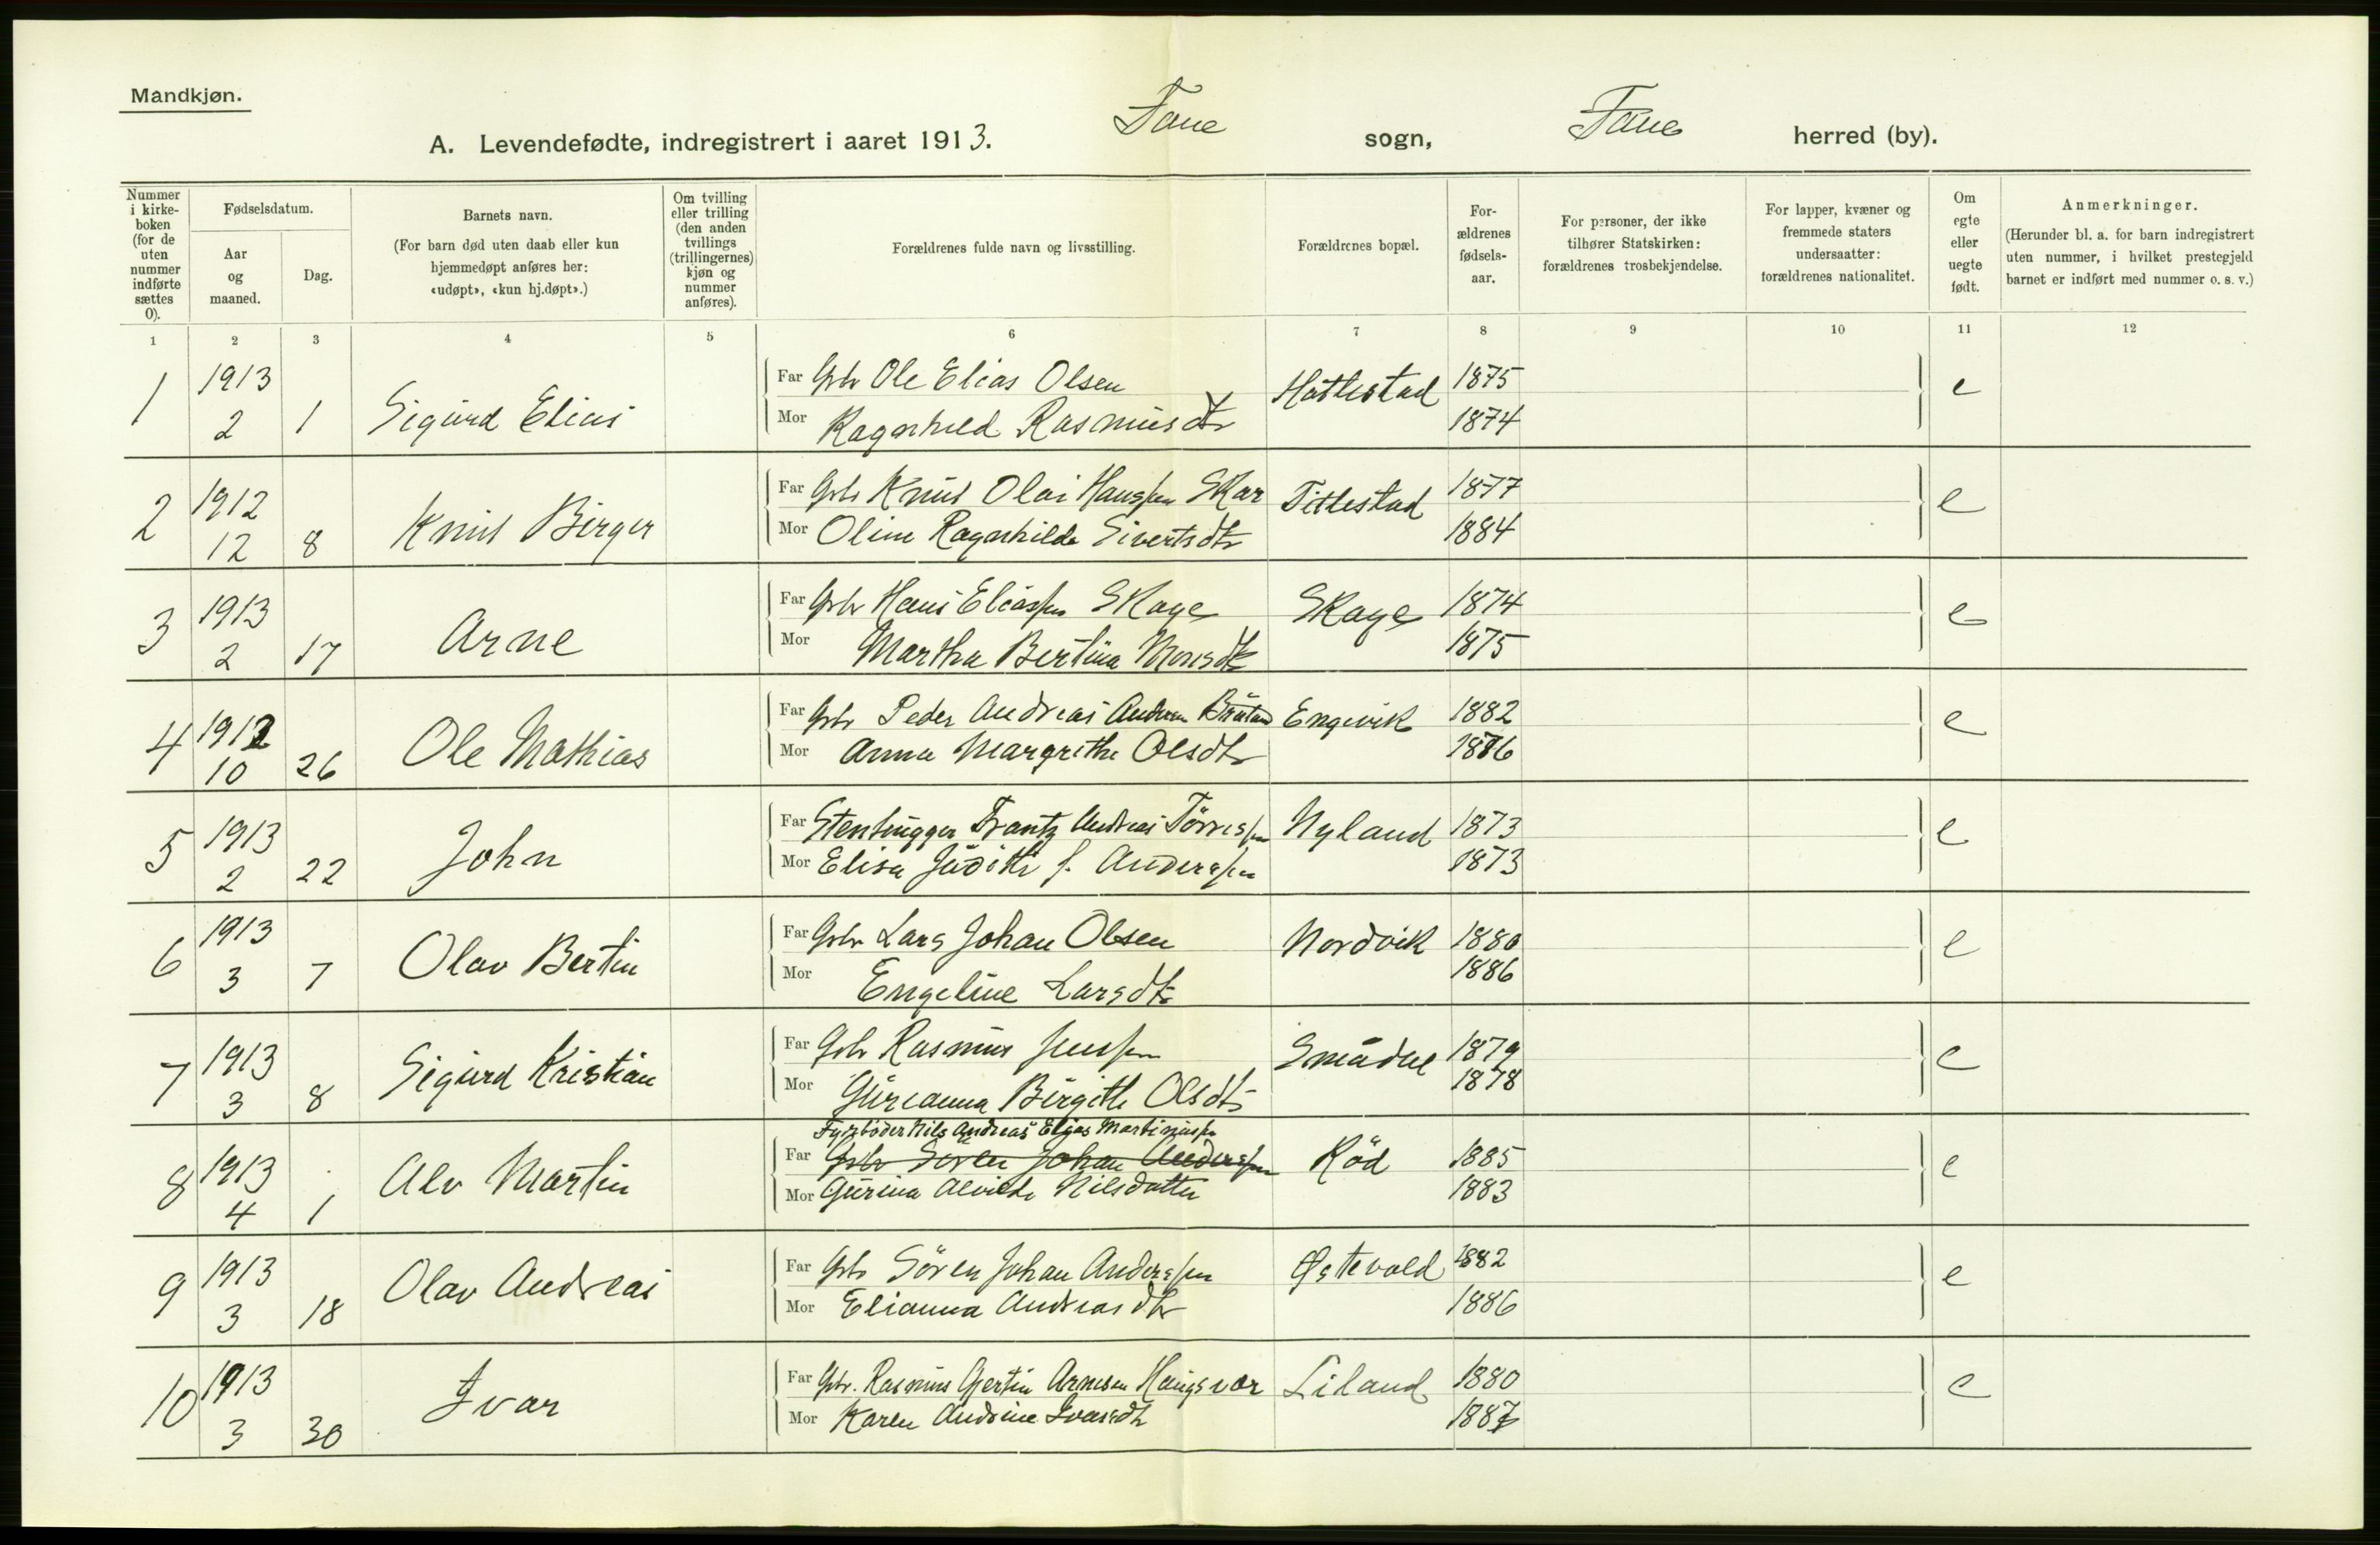 Mandkjøn.
A. Levendefødte, indregistrert i aaret 1913. Fane sogn, Fane herred (by).
Nummer i kirke-boken (for de uten nummer indførte sættes 0).
Fødselsdatum.
Aar og maaned.
Dag.
Barnets navn.
(For barn død uten daab eller kun hjemmedøpt anføres her: «udøpt», «kun hj.døpt».)
Om tvilling eller trilling (den anden tvillings (trillingernes) kjøn og nummer anføres).
Forældrenes fulde navn og livsstilling.
Forældrenes bopæl.
For-ældrenes fødsels-aar.
For personer, der ikke tilhører Statskirken: forældrenes trosbekjendelse.
For lapper, kvæner og fremmede staters undersaatter: forældrenes nationalitet.
Om egte eller uegte født.
Anmerkninger.
(Herunder bl. a. for barn indregistrert uten nummer, i hvilket prestegjeld barnet er indført med nummer o. s. v.)
1 2 3 4 5 6 7 8 9 10 11 12
1 1913 2 1 Sigurd Elias
Far Gbr Ole Elias Olsen Hattlestad 1875 e
Mor Ragnhild Rasmusdtr 1874
2 1912 12 8 Knut Birger
Far Gbr Knut Olai Hanssen Skar Titlestad 1877 e
Mor Oline Ragnhilde Sivertsdtr 1884
3 1913 2 17 Arne
Far Gbr Hans Eliassen Skage Skage 1874 e
Mor Martha Bertina Monsdtr 1875
4 1912 10 26 Ole Mathias
Far Gbr Peder Andreas Andersen Engevik 1882 e
Mor Anna Margrethe Olsdtr 1886
5 1913 2 22 John
Far Stenhugger Frantz Andreas Torrissen Nyland 1873 e
Mor Elisa Judith f. Anderssen 1873
6 1913 3 7 Olav Bertin
Far Gbr Lars Johan Olsen Nordvik 1880 e
Mor Engeline Larsdtr 1886
7 1913 3 8 Sigurd Kristian
Far Gbr Rasmus Jenssen 1879 e
Mor Gurianna Birgithe Olsdtr 1878
Fyrbøder Nils Andreas Elias Martinussen
8 1913 4 1 Alv Martin
Far Gbr Søren Johan Anderssen Rød 1885 e
Mor Gurina Alvilde Nilsdatter 1883
9 1913 3 18 Olav Andreas
Far Gbr Søren Johan Anderssen Østevold 1882 e
Mor Elianna Andreasdtr 1886
10 1913 3 30 Ivar
Far Gbr. Rasmus Gjertin Arnesen Haugsvær Liland 1880 e
Mor Karen Andrine Ivarsdtr 1887